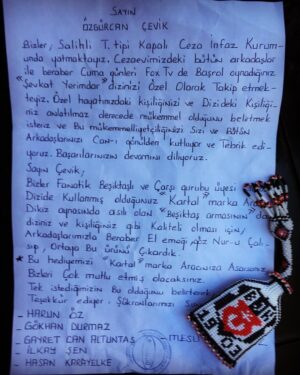 SAYIN
ÖZGÜRCAN ÇEVİK
Bizler, Salihli T.tipi Kapalı Ceza İnfaz Kurum-
unda yatmaktayız. Cezaevimizdeki bütün arkadaşlar
ile beraber Cuma günleri Fox Tv de Başrol oynadığınız
"Şevkat Yerimdar" dizinizi Özel Olarak Takip etmek-
teyiz. Özel hayatınızdaki Kişiliğinizi ve Dizideki Kişiliği-
niz anlatılmaz derecede mükemmel olduğunu belirtmek
isteriz ve Bu mükemmelliyetçiliğinizi Sizi ve Bütün
Arkadaşlarınızı Can-ı gönülden kutluyor ve Tebrik edi-
yoruz. Başarılarınızın devamını diliyoruz.
Sayın Çevik,
Bizler Fanatik Beşiktaşlı ve Çarşı gurubu üyesi
Dizide Kullanmış olduğunuz "Kartal" marka
Dikiz aynasında asılı olan "Beşiktaş armasının"
diziniz ve kişiliğiniz gibi Kaliteli olması için,
Arkadaşlarımızla Beraber El emeği göz Nur-u Çalı-
şıp, Ortaya Bu ürünü Çıkardık.
* Bu hediyemizi "Kartal" marka Aracınıza Asarsanız
Bizleri Çok mutlu etmiş olacaksınız.
Tek istediğimizin Bu olduğunu belirterek
Teşekkür ediyor, Şükranlarımızı
- HARUN ÖZ
- GÖKHAN DURMAZ
- GAYRET CAN ALTUNTAŞ
- İLKAY ŞEN
- HASAN KARAYELKE
BJK
1903